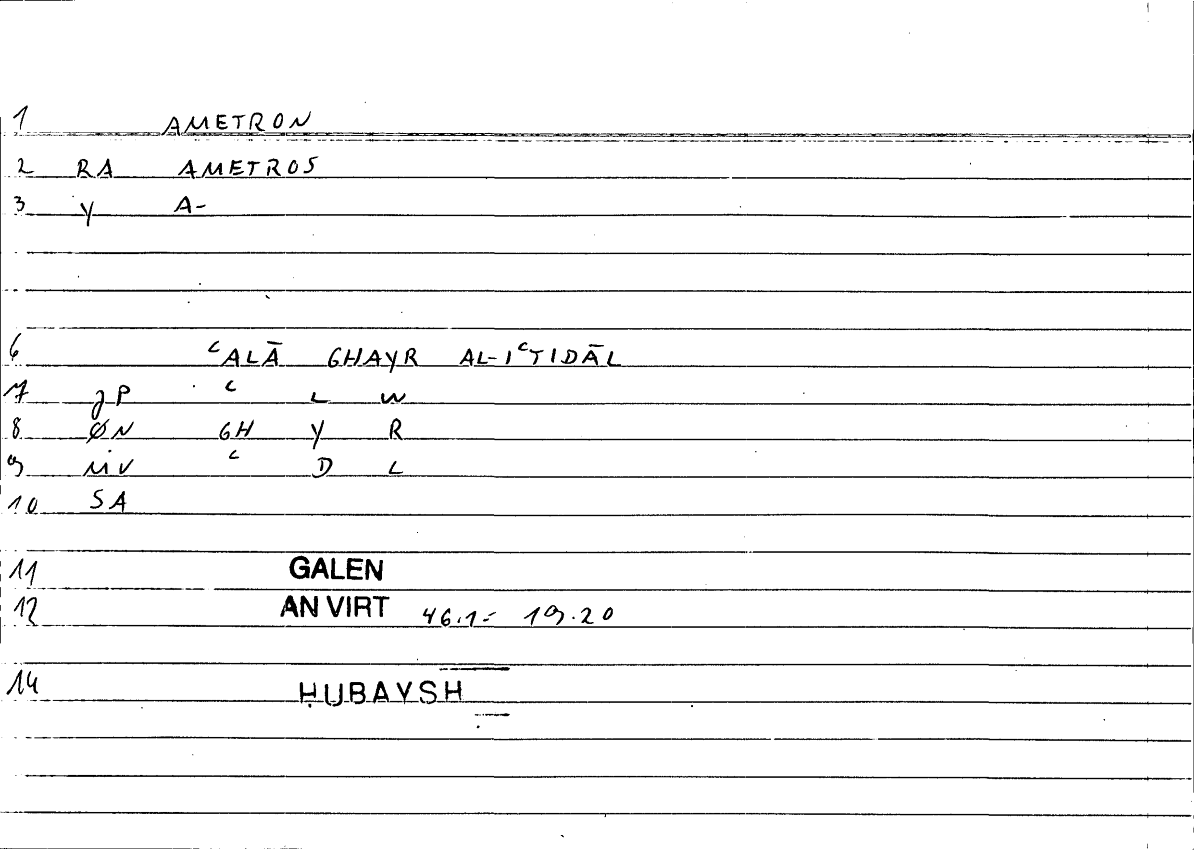 1 AMETRON
2 RA AMETROS
3 Y A-
6 ᶜALĀ GHAYR AL-IᶜTIDĀL
7 JP ᶜ L W
8 ØN GH Y R
9 MV ᶜ D L
10 SA
11 GALEN
12 AN VIRT 46.1- 19.20
14 ḤUBAYSH